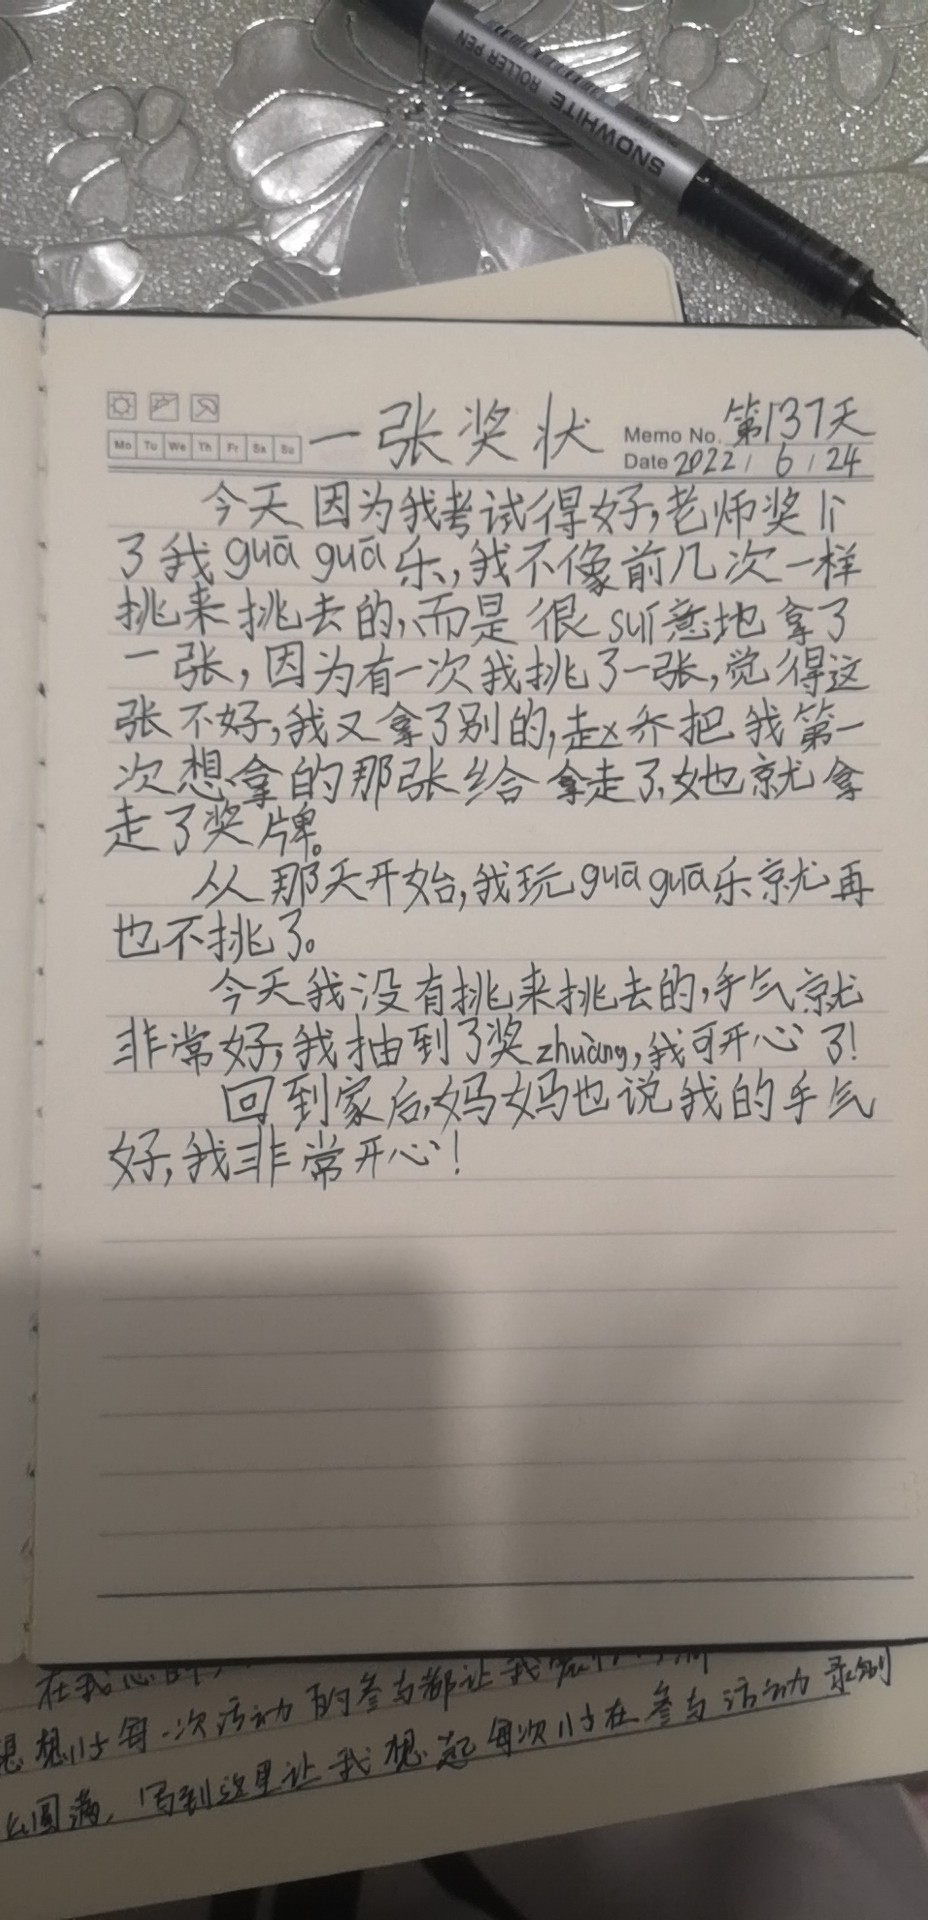 SNOWHITE ROLLER PEN
Mo Tu We Th Fr Sa Su
一张奖状
Memo No. 第137天
Date 2022 / 6 / 24
今天因为我考试得好,老师奖
了我guā guā乐,我不像前几次一样
挑来挑去的,而是很suí意地拿了
一张,因为有一次我挑了一张,觉得这
张不好,我又拿了别的,赵乔把我第一
次想拿的那张给拿走了,她也就拿
走了奖牌。
从那天开始,我玩guā guā乐就再
也不挑了。
今天我没有挑来挑去的,手气就
非常好,我抽到了奖zhuàng,我可开心了!
回到家后,妈妈也说我的手气
好,我非常开心!
在我
想想每一次活动的参与都让我
圆满,写到这里让我想起每次在参与活动